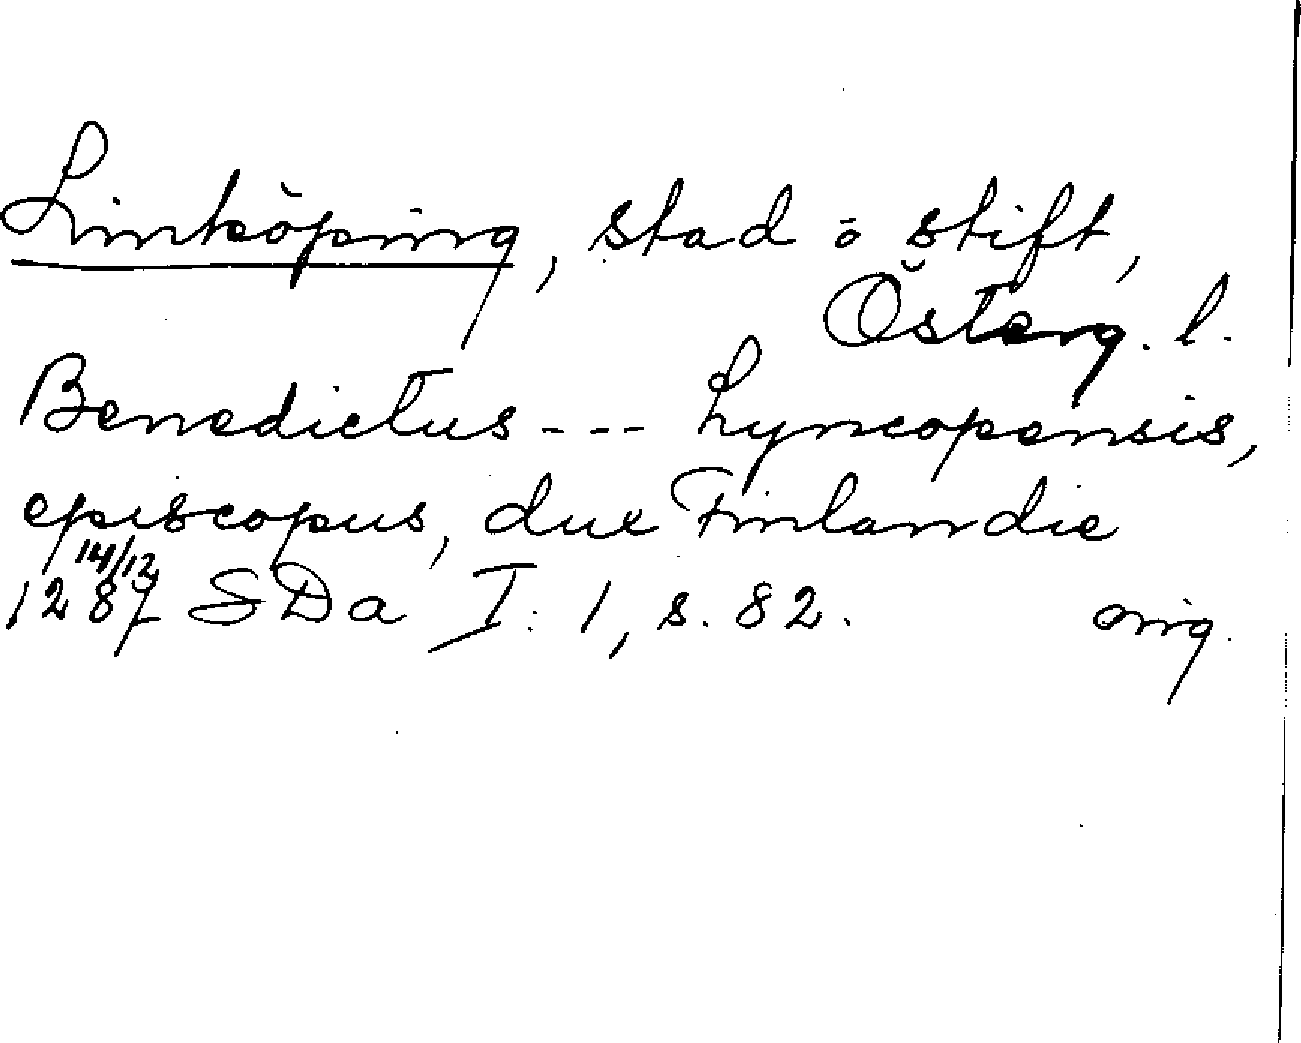 Linköping, stad o stift,
Österg. l.
Benedictus --- Lyncopensis,
episcopus, dux Finlandie
14/12
1287 SDa I: 1, s. 82. orig.